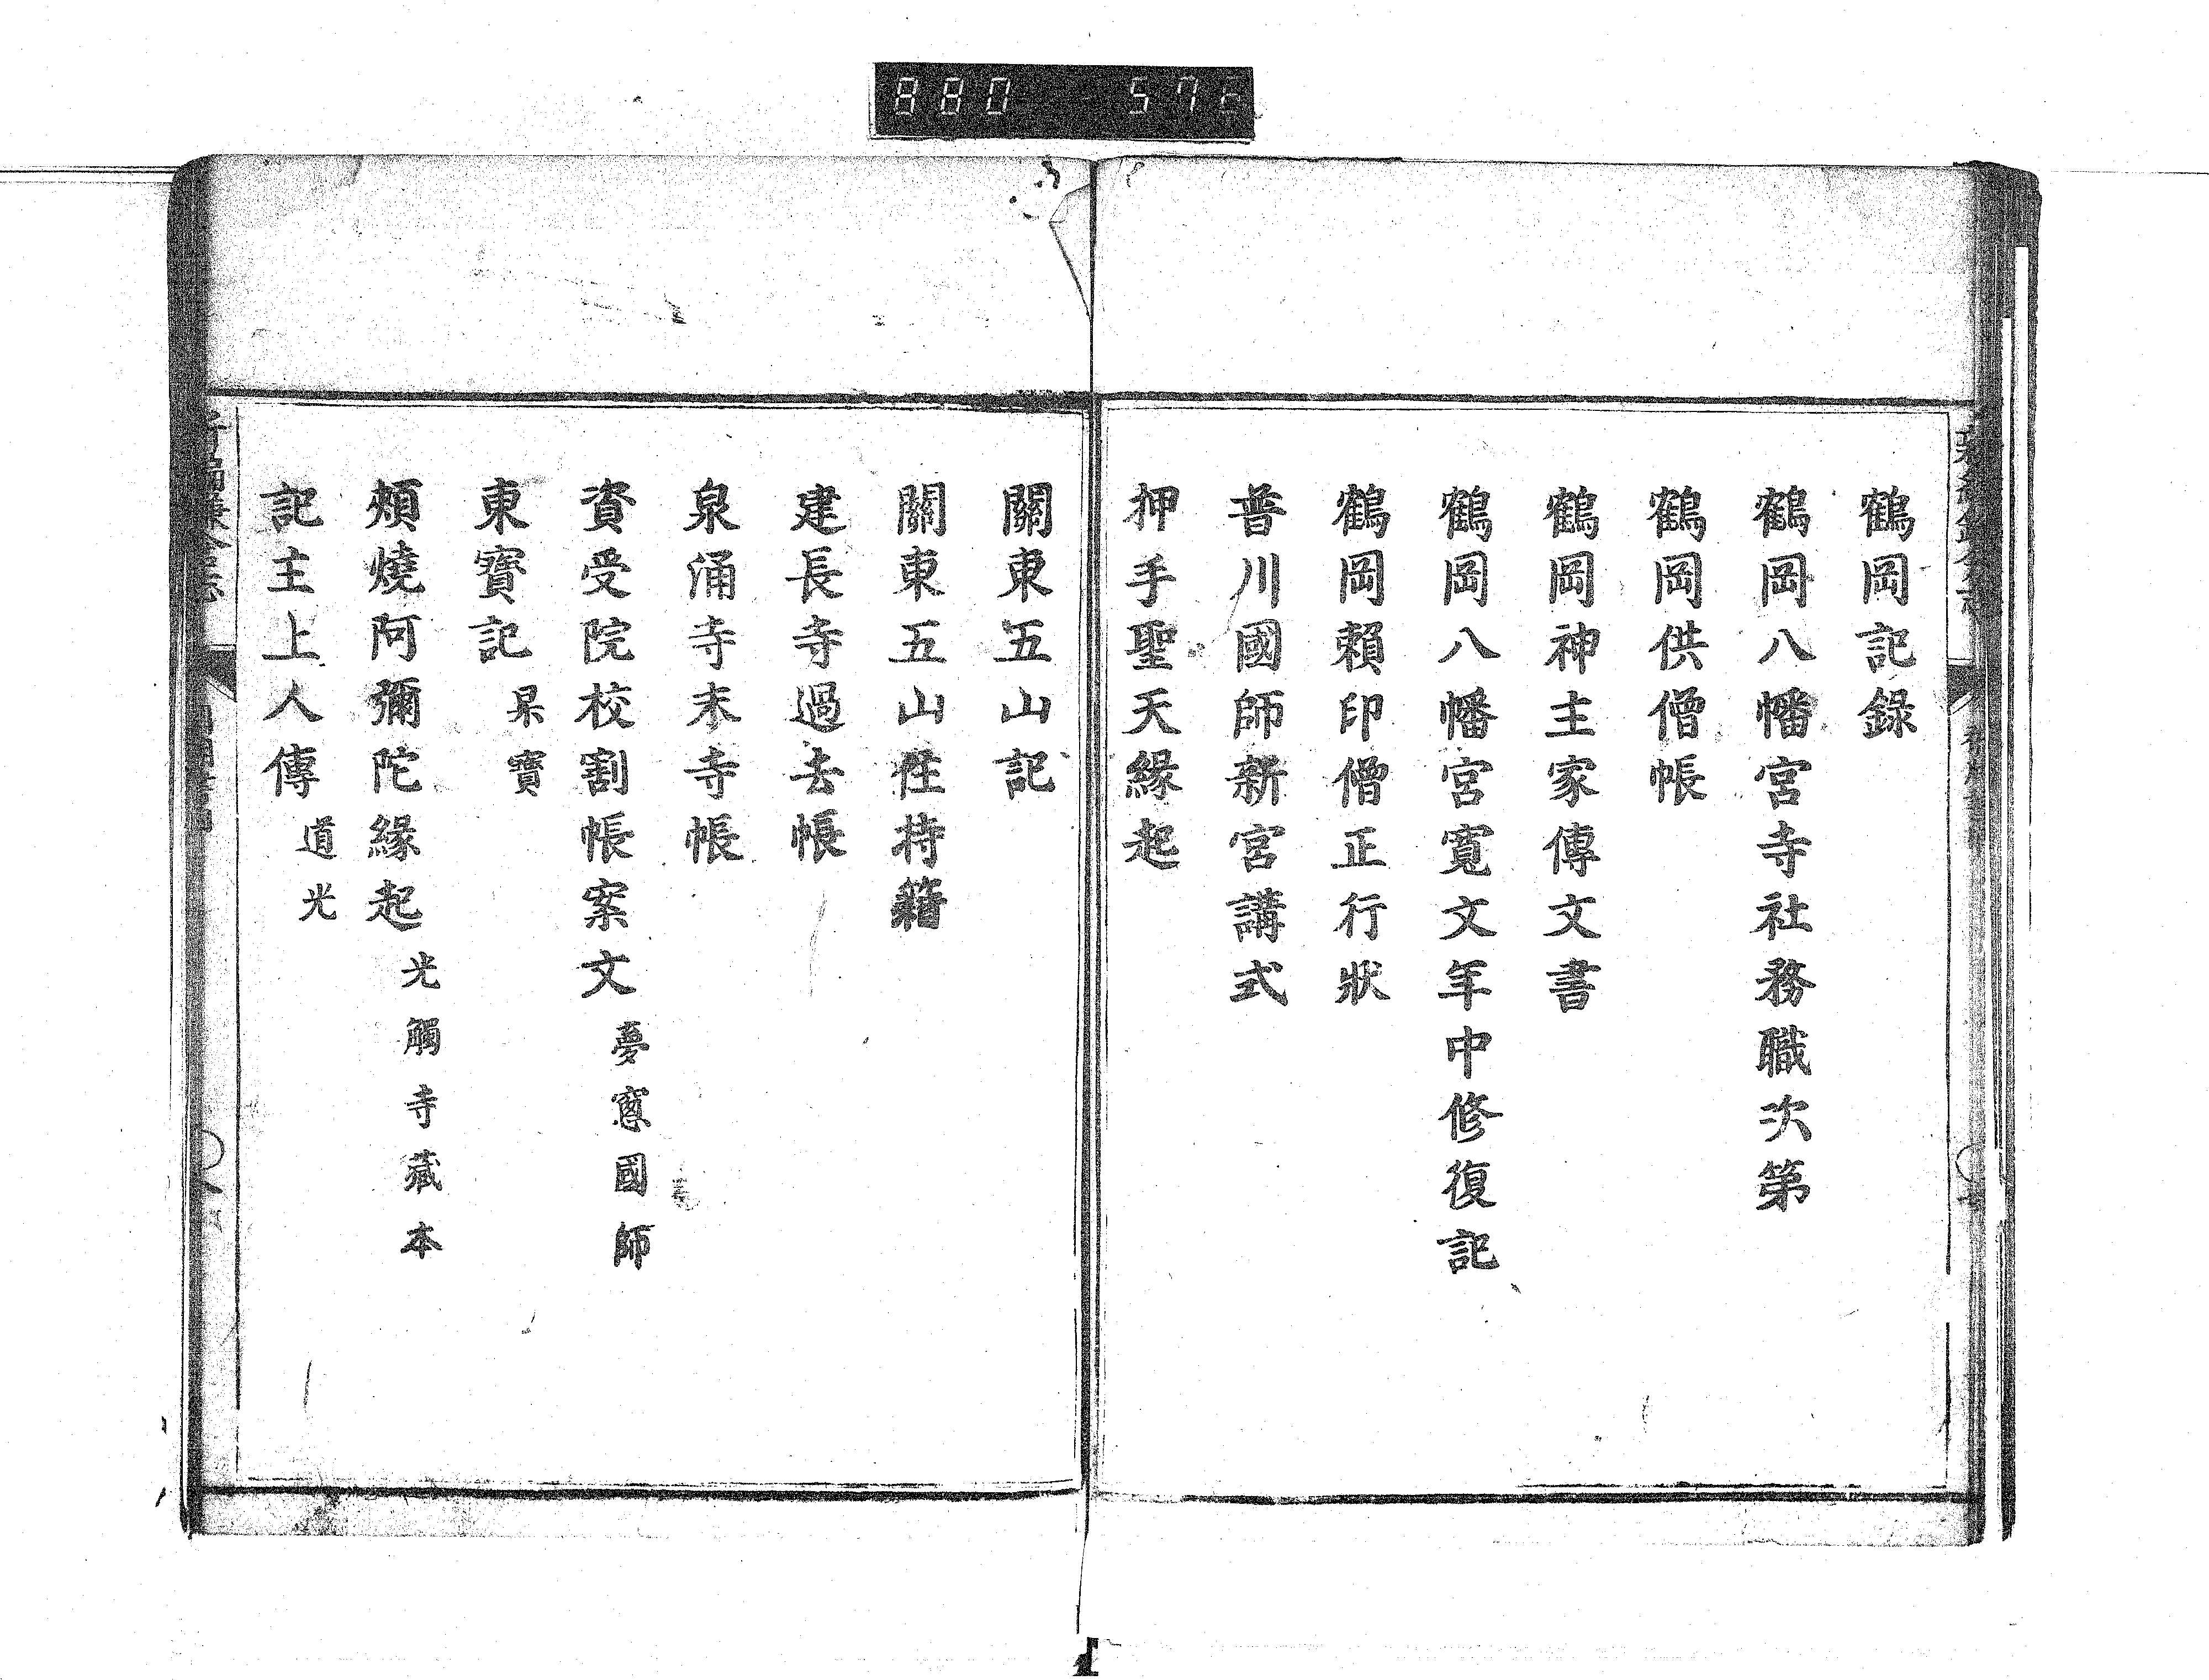 鶴岡記錄
鶴岡八幡宮寺社務職次第
鶴岡供僧帳
鶴岡神主家傳文書
鶴岡八幡宮寬文年中修復記
鶴岡賴印僧正行狀
普川國師新宮講式
押手聖天緣起
關東五山記
關東五山住持籍
建長寺過去帳
泉涌寺末寺帳
資受院校割帳案文 夢窻國師
東寶記 杲寶
頰燒阿彌陀緣起 光觸寺藏本
記主上人傳 道光